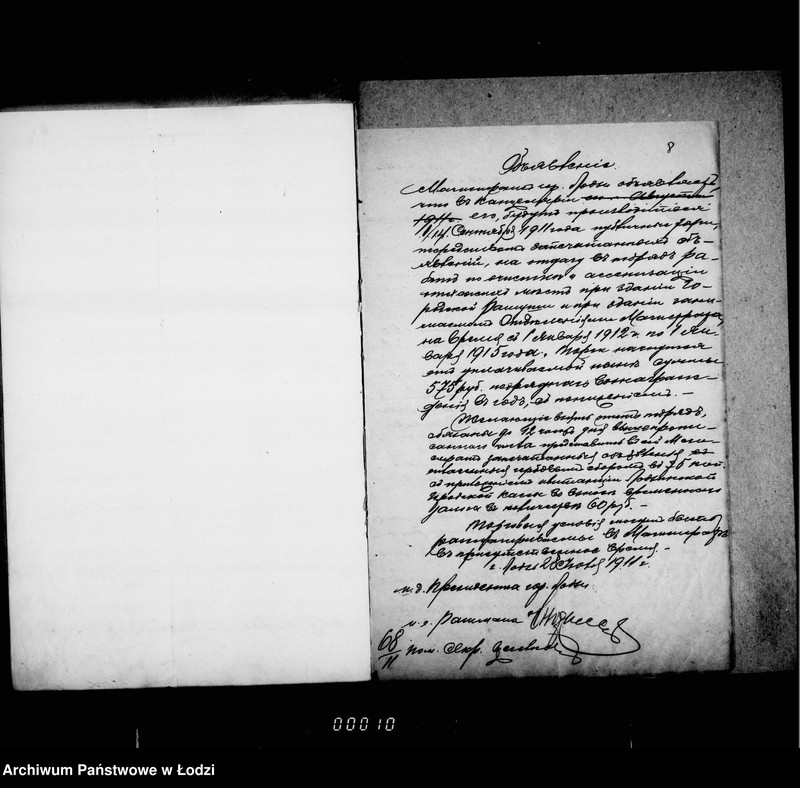 8
Объявленіе.
Магистратъ гор. Лодзи объявляетъ,
что въ канцеляріи
1911 г. его, будутъ производиться
1/14 Сентября 1911 года публичные торги,
посредствомъ запечатанныхъ объ-
явленій, на отдачу въ подрядъ ра-
ботъ по очисткѣ и ассенизаціи
мѣстъ при зданіи Го-
родской Ратуши и при зданіи зани-
маемомъ Отдѣленіями Магистрата,
на время съ 1 Января 1912 г. по 1 Ян-
варя 1915 года. Торги начнутся
отъ уплачиваемой нынѣ суммы
575 руб. подряднаго вознаграж-
денія въ годъ, съ пониженіемъ. —
Желающіе взять этотъ подрядъ,
обязаны до 12 часовъ дня вышепропи-
саннаго числа представить въ сей Маги-
стратъ запечатанныя объявленія
гербовымъ сборомъ въ 75 коп.
съ приложеніемъ квитанціи Лодзинской
Городской кассы во взносѣ временнаго
залога въ количествѣ 60 руб. —
Торговыя условія могутъ быть
разсматриваемы въ Магистратѣ
въ присутственное время. —
г. Лодзь 28 1911 г.
и. д. Президента гор. Лодзи
и. о. Ратмана
68/II пом. Секр.
00010
Archiwum Państwowe w Łodzi